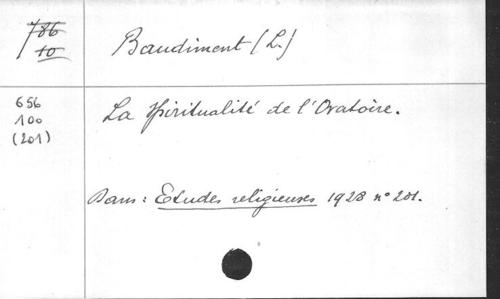 786
10
Baudiment (L.)
656
100
(201)
La Spiritualité de l'Oratoire.
Dans : Etudes religieuses 1928 n° 201.